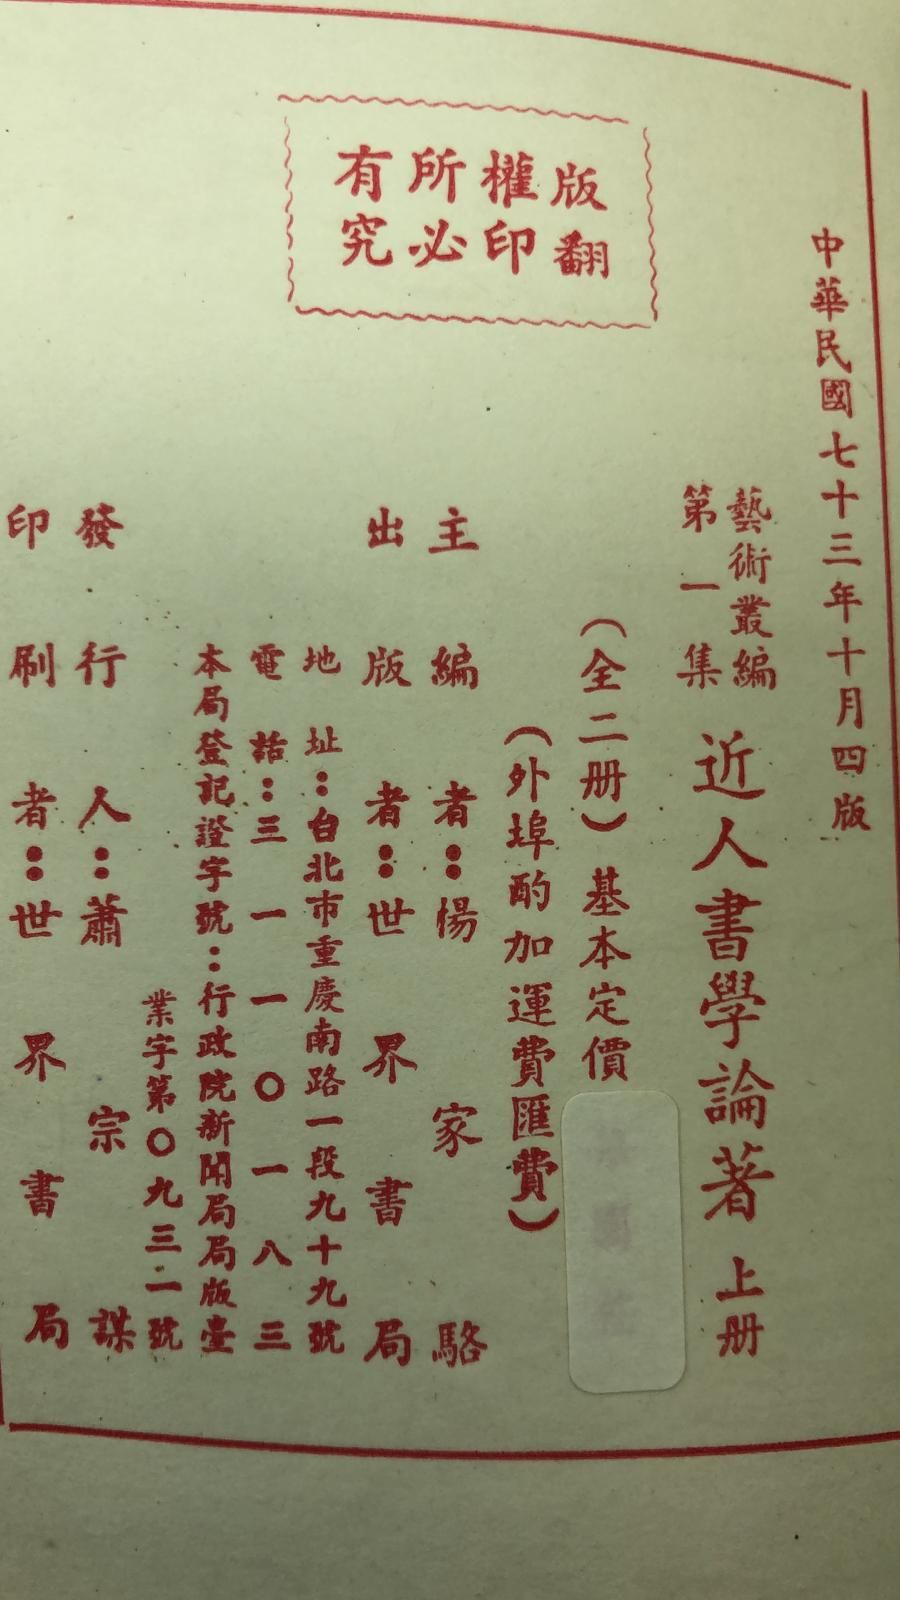 版權所有
翻印必究
中華民國七十三年十月四版
藝術叢編
第一集
近人書學論著 上册
（全二册）基本定價
（外埠酌加運費匯費）
主編者：楊家駱
出版者：世界書局
地址：台北市重慶南路一段九十九號
電話：三一一〇一八三
本局登記證字號：行政院新聞局局版臺
業字第〇九三一號
發行人：蕭宗謀
印刷者：世界書局